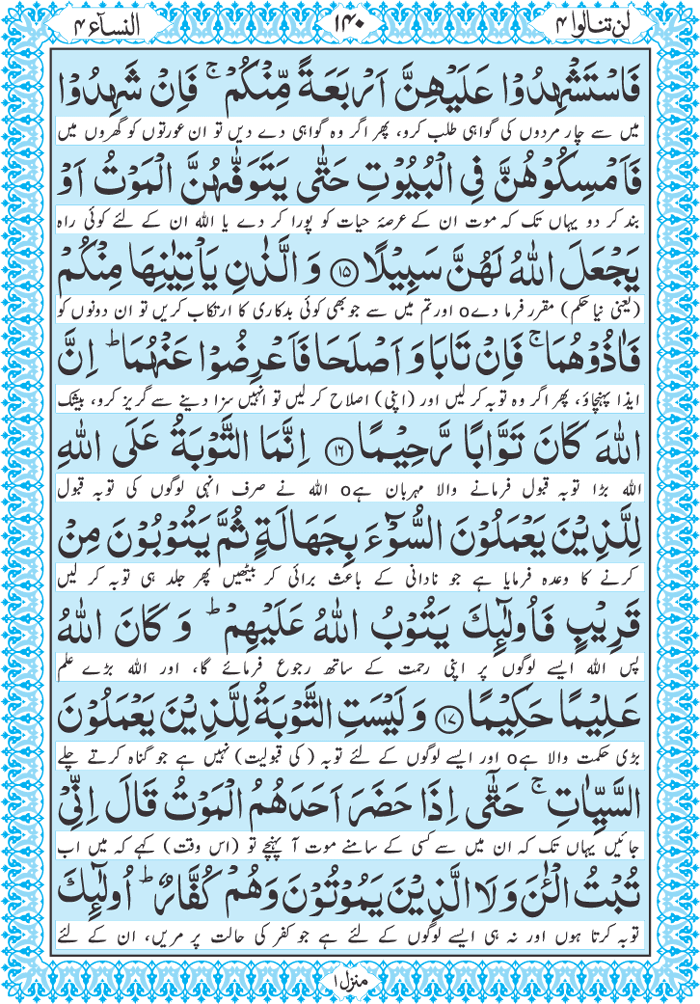 لن تنالوا ۴
۱۴۰
النسآء ۴
فَاسْتَشْهِدُوْا عَلَيْهِنَّ اَرْبَعَةً مِّنْكُمْ ۚ فَاِنْ شَهِدُوْا
میں سے چار مردوں کی گواہی طلب کرو، پھر اگر وہ گواہی دے دیں تو ان عورتوں کو گھروں میں
فَاَمْسِكُوْهُنَّ فِی الْبُيُوْتِ حَتّٰی يَتَوَفّٰهُنَّ الْمَوْتُ اَوْ
بند کر دو یہاں تک کہ موت ان کے عرصۂ حیات کو پورا کر دے یا اللہ ان کے لئے کوئی راہ
يَجْعَلَ اللّٰهُ لَهُنَّ سَبِيْلًا ﴿۱۵﴾ وَ الَّذٰنِ يَاْتِيٰنِهَا مِنْكُمْ
(یعنی نیا حکم) مقرر فرما دےo اور تم میں سے جو بھی کوئی بدکاری کا ارتکاب کریں تو ان دونوں کو
فَاٰذُوْهُمَا ۚ فَاِنْ تَابَا وَ اَصْلَحَا فَاَعْرِضُوْا عَنْهُمَا ؕ اِنَّ
ایذا پہنچاؤ، پھر اگر وہ توبہ کر لیں اور (اپنی) اصلاح کر لیں تو انہیں سزا دینے سے گریز کرو، بیشک
اللّٰهَ كَانَ تَوَّابًا رَّحِيْمًا ﴿۱۶﴾ اِنَّمَا التَّوْبَةُ عَلَی اللّٰهِ
اللہ بڑا توبہ قبول فرمانے والا مہربان ہےo اللہ نے صرف انہی لوگوں کی توبہ قبول
لِلَّذِيْنَ يَعْمَلُوْنَ السُّوْٓءَ بِجَهَالَةٍ ثُمَّ يَتُوْبُوْنَ مِنْ
کرنے کا وعدہ فرمایا ہے جو نادانی کے باعث برائی کر بیٹھیں پھر جلد ہی توبہ کر لیں
قَرِيْبٍ فَاُولٰٓئِكَ يَتُوْبُ اللّٰهُ عَلَيْهِمْ ؕ وَ كَانَ اللّٰهُ
پس اللہ ایسے لوگوں پر اپنی رحمت کے ساتھ رجوع فرمائے گا، اور اللہ بڑے علم
عَلِيْمًا حَكِيْمًا ﴿۱۷﴾ وَ لَيْسَتِ التَّوْبَةُ لِلَّذِيْنَ يَعْمَلُوْنَ
بڑی حکمت والا ہےo اور ایسے لوگوں کے لئے توبہ (کی قبولیت) نہیں ہے جو گناہ کرتے چلے
السَّيِّاٰتِ ۚ حَتّٰۤی اِذَا حَضَرَ اَحَدَهُمُ الْمَوْتُ قَالَ اِنِّیْ
جائیں یہاں تک کہ ان میں سے کسی کے سامنے موت آ پہنچے تو (اس وقت) کہے کہ میں اب
تُبْتُ الْـٰٔنَ وَ لَا الَّذِيْنَ يَمُوْتُوْنَ وَ هُمْ كُفَّارٌ ؕ اُولٰٓئِكَ
توبہ کرتا ہوں اور نہ ہی ایسے لوگوں کے لئے ہے جو کفر کی حالت پر مریں، ان کے لئے
منزل ۱